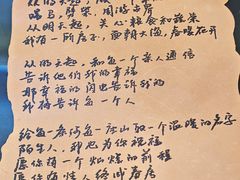 从明天起，
喂马，劈柴，周游世界
从明天起，关心粮食和蔬菜
我有一所房子，面朝大海，春暖花开
从明天起，和每一个亲人通信
告诉他们我的幸福
那幸福的闪电告诉我的
我将告诉每一个人
给每一条河每一座山取一个温暖的名字
陌生人，我也为你祝福
愿你有一个灿烂的前程
愿你有情人终成眷属